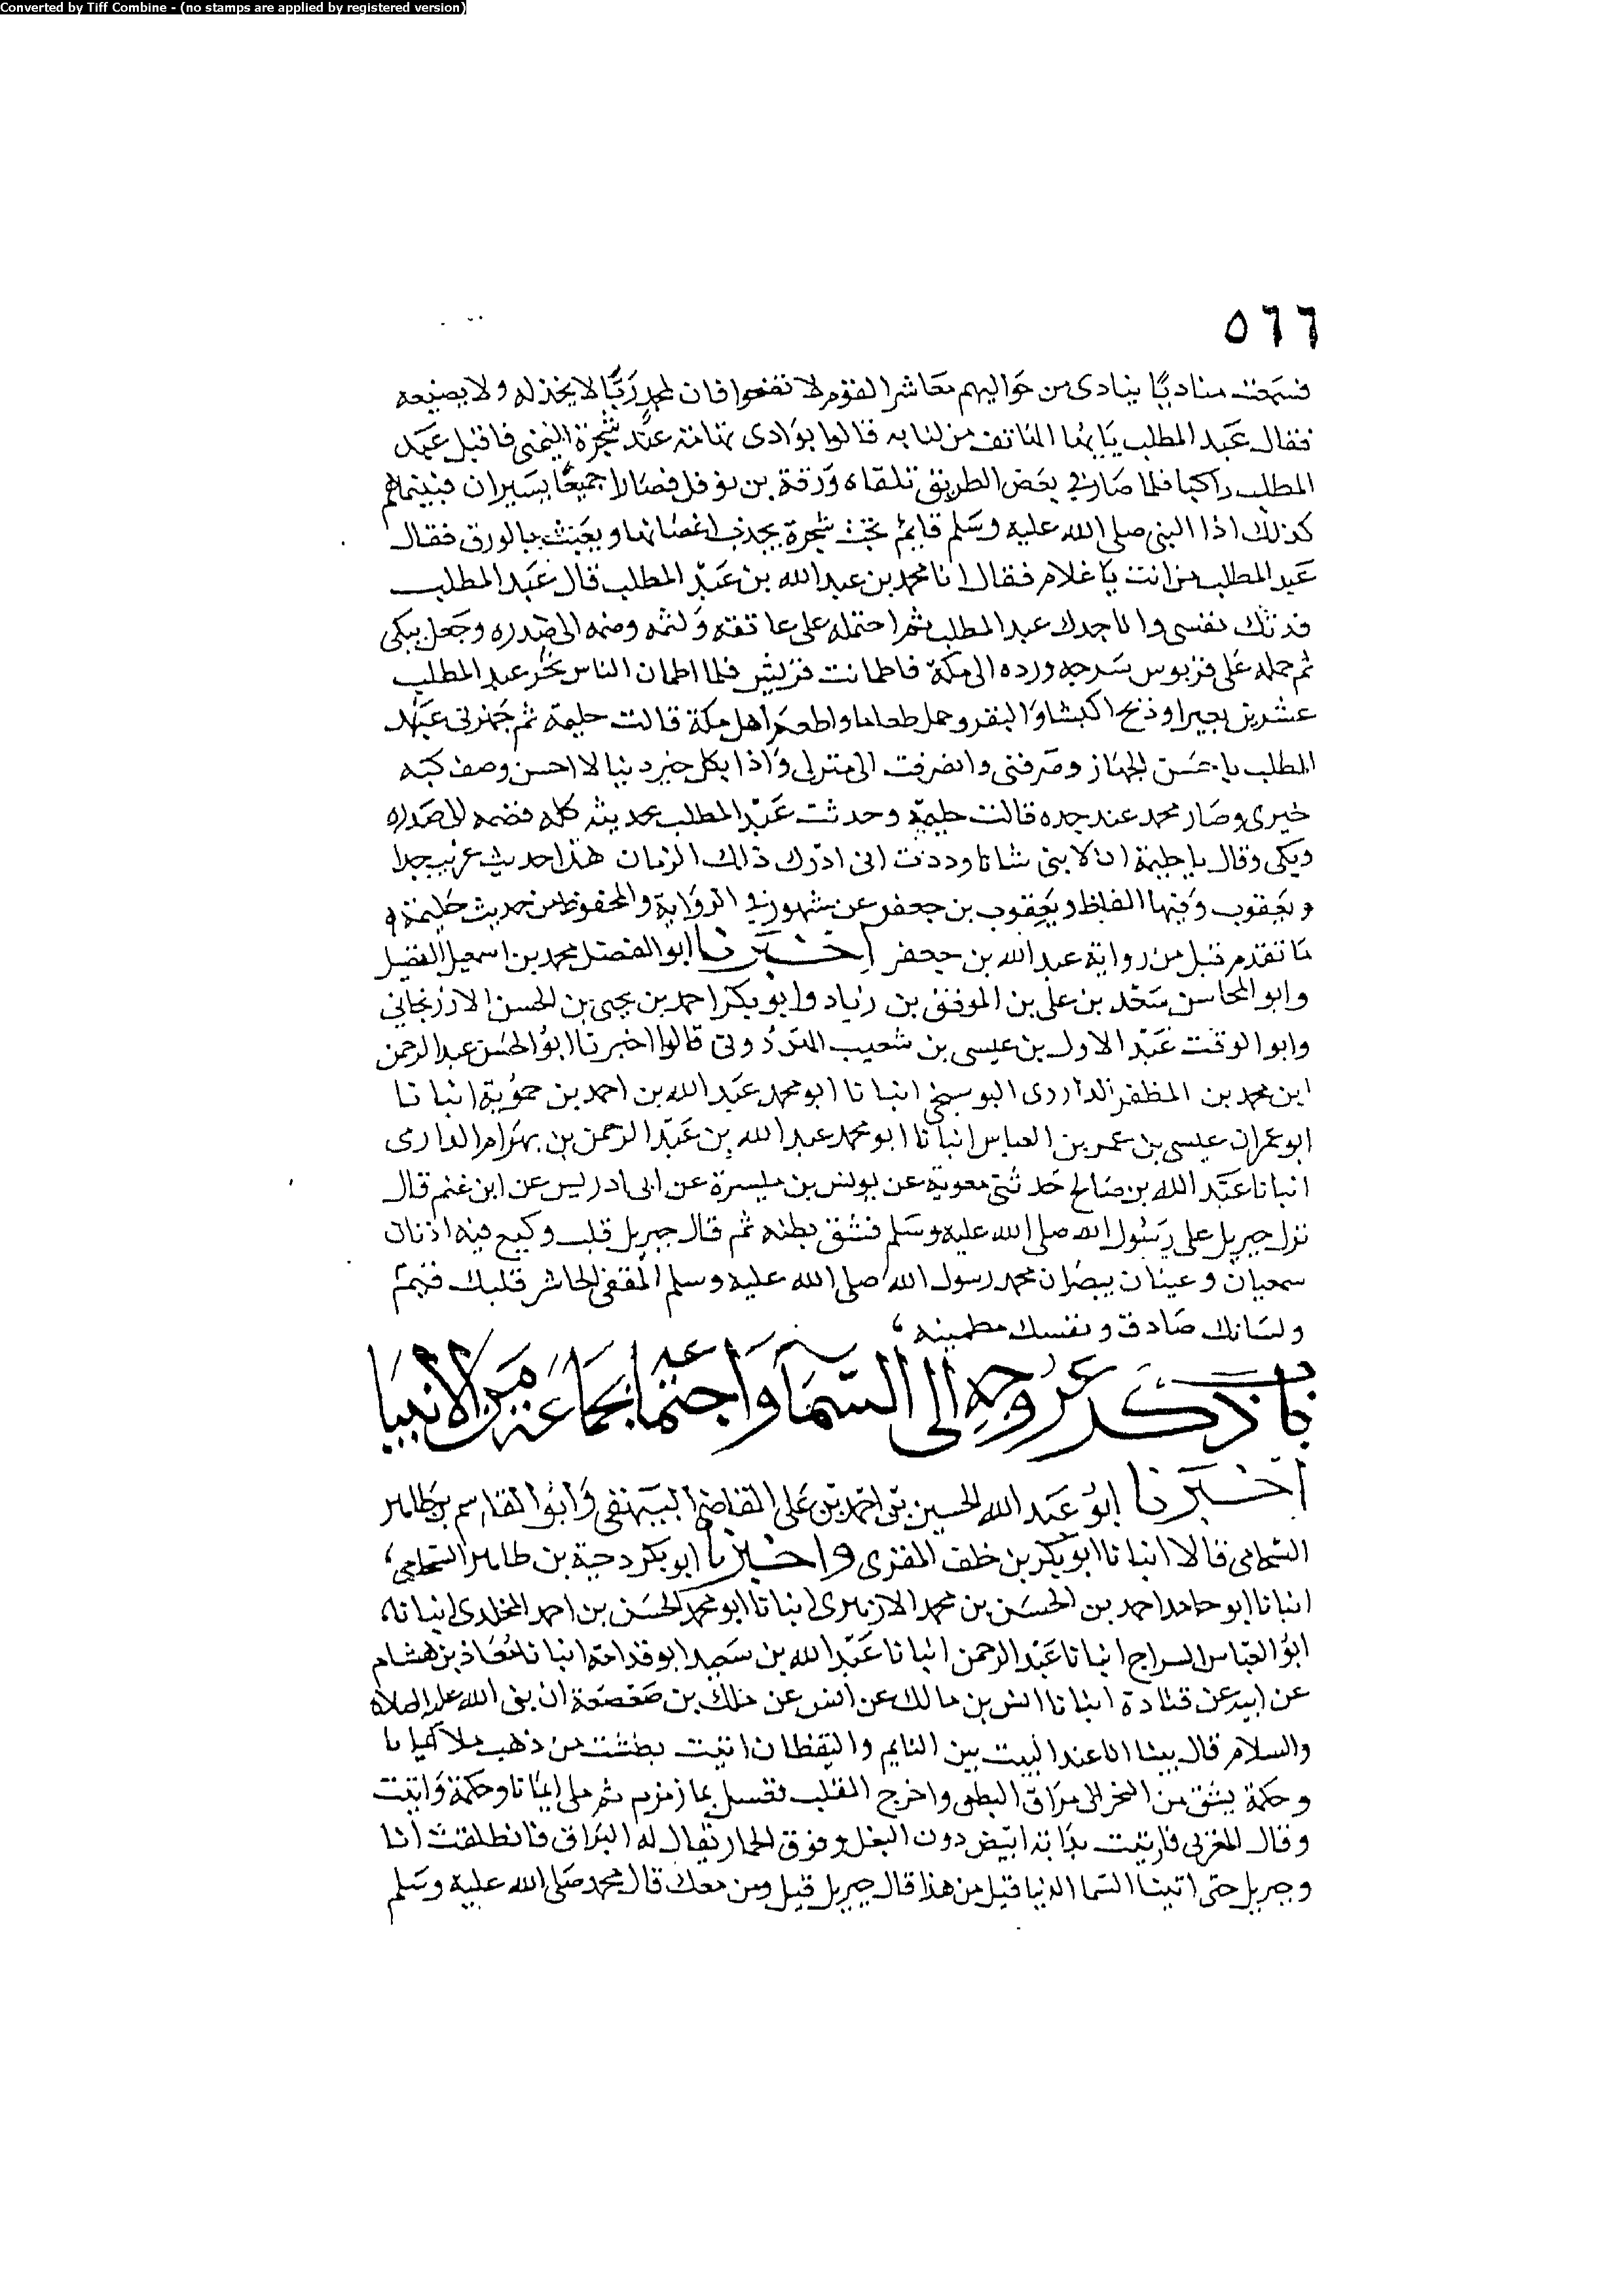 Converted by Tiff Combine - (no stamps are applied by registered version)
٥٦٦
فسمعت مناديا ينادى من حواليهم معاشر القوم لا تضجوا فان لمحمد رَبًّا لا يخذله ولا يضيعه
فقال عبد المطلب يايها الهاتف من لنا به قالوا بوادى تهامة عند شجرة اليمنى فاقبل عبد
المطلب راكبا فلما صار في بعض الطريق تلقاه ورقة بن نوفل فصارا جميعًا يسيران فبينما هم
كذلك اذا النبى صلى الله عليه وسلم قايم تحت شجرة يجذب اغصانها ويعبث بالورق فقال
عبد المطلب من انت يا غلام فقال انا محمد بن عبد الله بن عبد المطلب قال عبد المطلب
فدتك نفسى وانا جدك عبد المطلب ثم احتمله على عاتقه ولثمه وضمه الى صدره وجعل يبكى
ثم حمله على قربوس سرجه ورده الى مكة فاطمانت قريش فلما اطمان الناس نحر عبد المطلب
عشرين بعيرا وذبح اكبشا والبقر وحمل طعاما واطعم اهل مكة قالت حليمة ثم جهزنى عبد
المطلب باحسن الجهاز وصرفنى وانصرفت الى منزلى واذا بكل خير دنيا لا احسن وصف كبه
خيرى وصار محمد عند جده قالت حليمة وحدثت عبد المطلب بحديثه كله فضمه الى صدره
وبكى وقال يا حليمة ان لابنى شانا وددت انى ادرك ذلك الزمان هذا حديث غريب جدا
ويعقوب وفيها الفاظ ويعقوب بن جعفر عن مشهور في الرواية والمحفوظ من حديث حليمة
ما تقدم قبل من رواية عبد الله بن جعفر اخبرنا ابو الفضل محمد بن اسمعيل الفضيل
وابو المحاسن سعد بن على بن الموفق بن زياد وابو بكر احمد بن يحيى بن الحسن الازرنجاني
وابو الوقت عبد الاول بن عيسى بن شعيب قالوا اخبرنا ابو الحسن عبد الرحمن
ابن محمد بن المظفر الداردى البوسنجى انبانا ابو محمد عبد الله بن احمد بن حموية انبانا
ابو عمران عيسى بن عمر بن العباس انبانا ابو محمد عبد الله بن عبد الرحمن بن بهرام الدارى
انبانا عبد الله بن صالح حدثنى معوية عن يونس بن ميسرة عن ابى ادريس عن ابن غنم قال
نزل جبريل على رسول الله صلى الله عليه وسلم فشق بطنه ثم قال جبريل قلب وكيع فيه اذنان
سمعيان وعينان يبصران محمد رسول الله صلى الله عليه وسلم المقفى الحاشر قلبك فيم
ولسانك صادق ونفسك مطمينه
باب ذكر عروجه الى السما واجتماعه بجماعة من الانبيا
اخبرنا ابو عبد الله الحسين بن احمد بن على القاضى البيهقى وابو القاسم بن طاهر
الشحامى قالا انبانا ابو بكر بن خلف المقرى واخبرنا ابو بكر وجيه بن طاهر الشحامى
انبانا ابو حامد احمد بن الحسن بن محمد الازهرى انبانا ابو محمد الحسن بن احمد المخلدى انبانا
ابو العباس السراج انبانا عبد الرحمن انبانا عبد الله بن سعيد ابو قدامة انبانا معاذ بن هشام
عن ابيه عن قتادة انبانا انس بن مالك عن انس عن ملك بن صعصعة ان نبى الله عليه الصلاة
والسلام قال بينا انا عند البيت بين النايم واليقظان اتيت بطشت من ذهب ملآ ايمانا
وحكمة يشق من النحر الى مراق البطن واخرج القلب فغسل بماء زمزم ثم ملى ايمانا وحكمة واتيت
وقال المغربى فاتيت بدابة ابيض دون البغل وفوق الحمار يقال له البراق فانطلقت انا
وجبريل حتى اتينا السما الدنيا قيل من هذا قال جبريل قيل ومن معك قال محمد صلى الله عليه وسلم